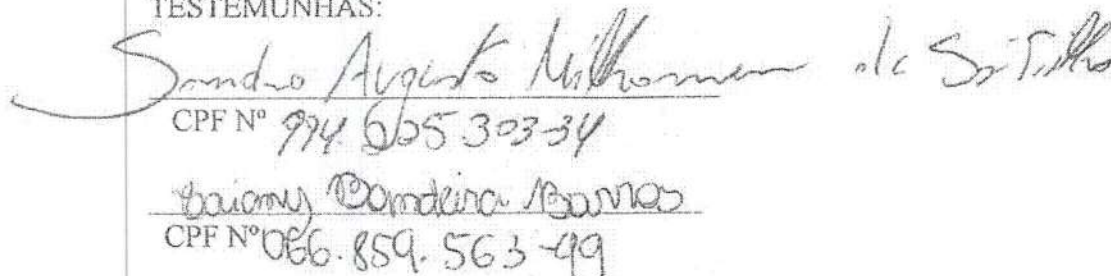 TESTEMUNHAS:
Sandro Augusto Milhomem de Sá Filho
CPF Nº 994.005.303-34
Bandeira Barros
CPF Nº 066.859.563-99